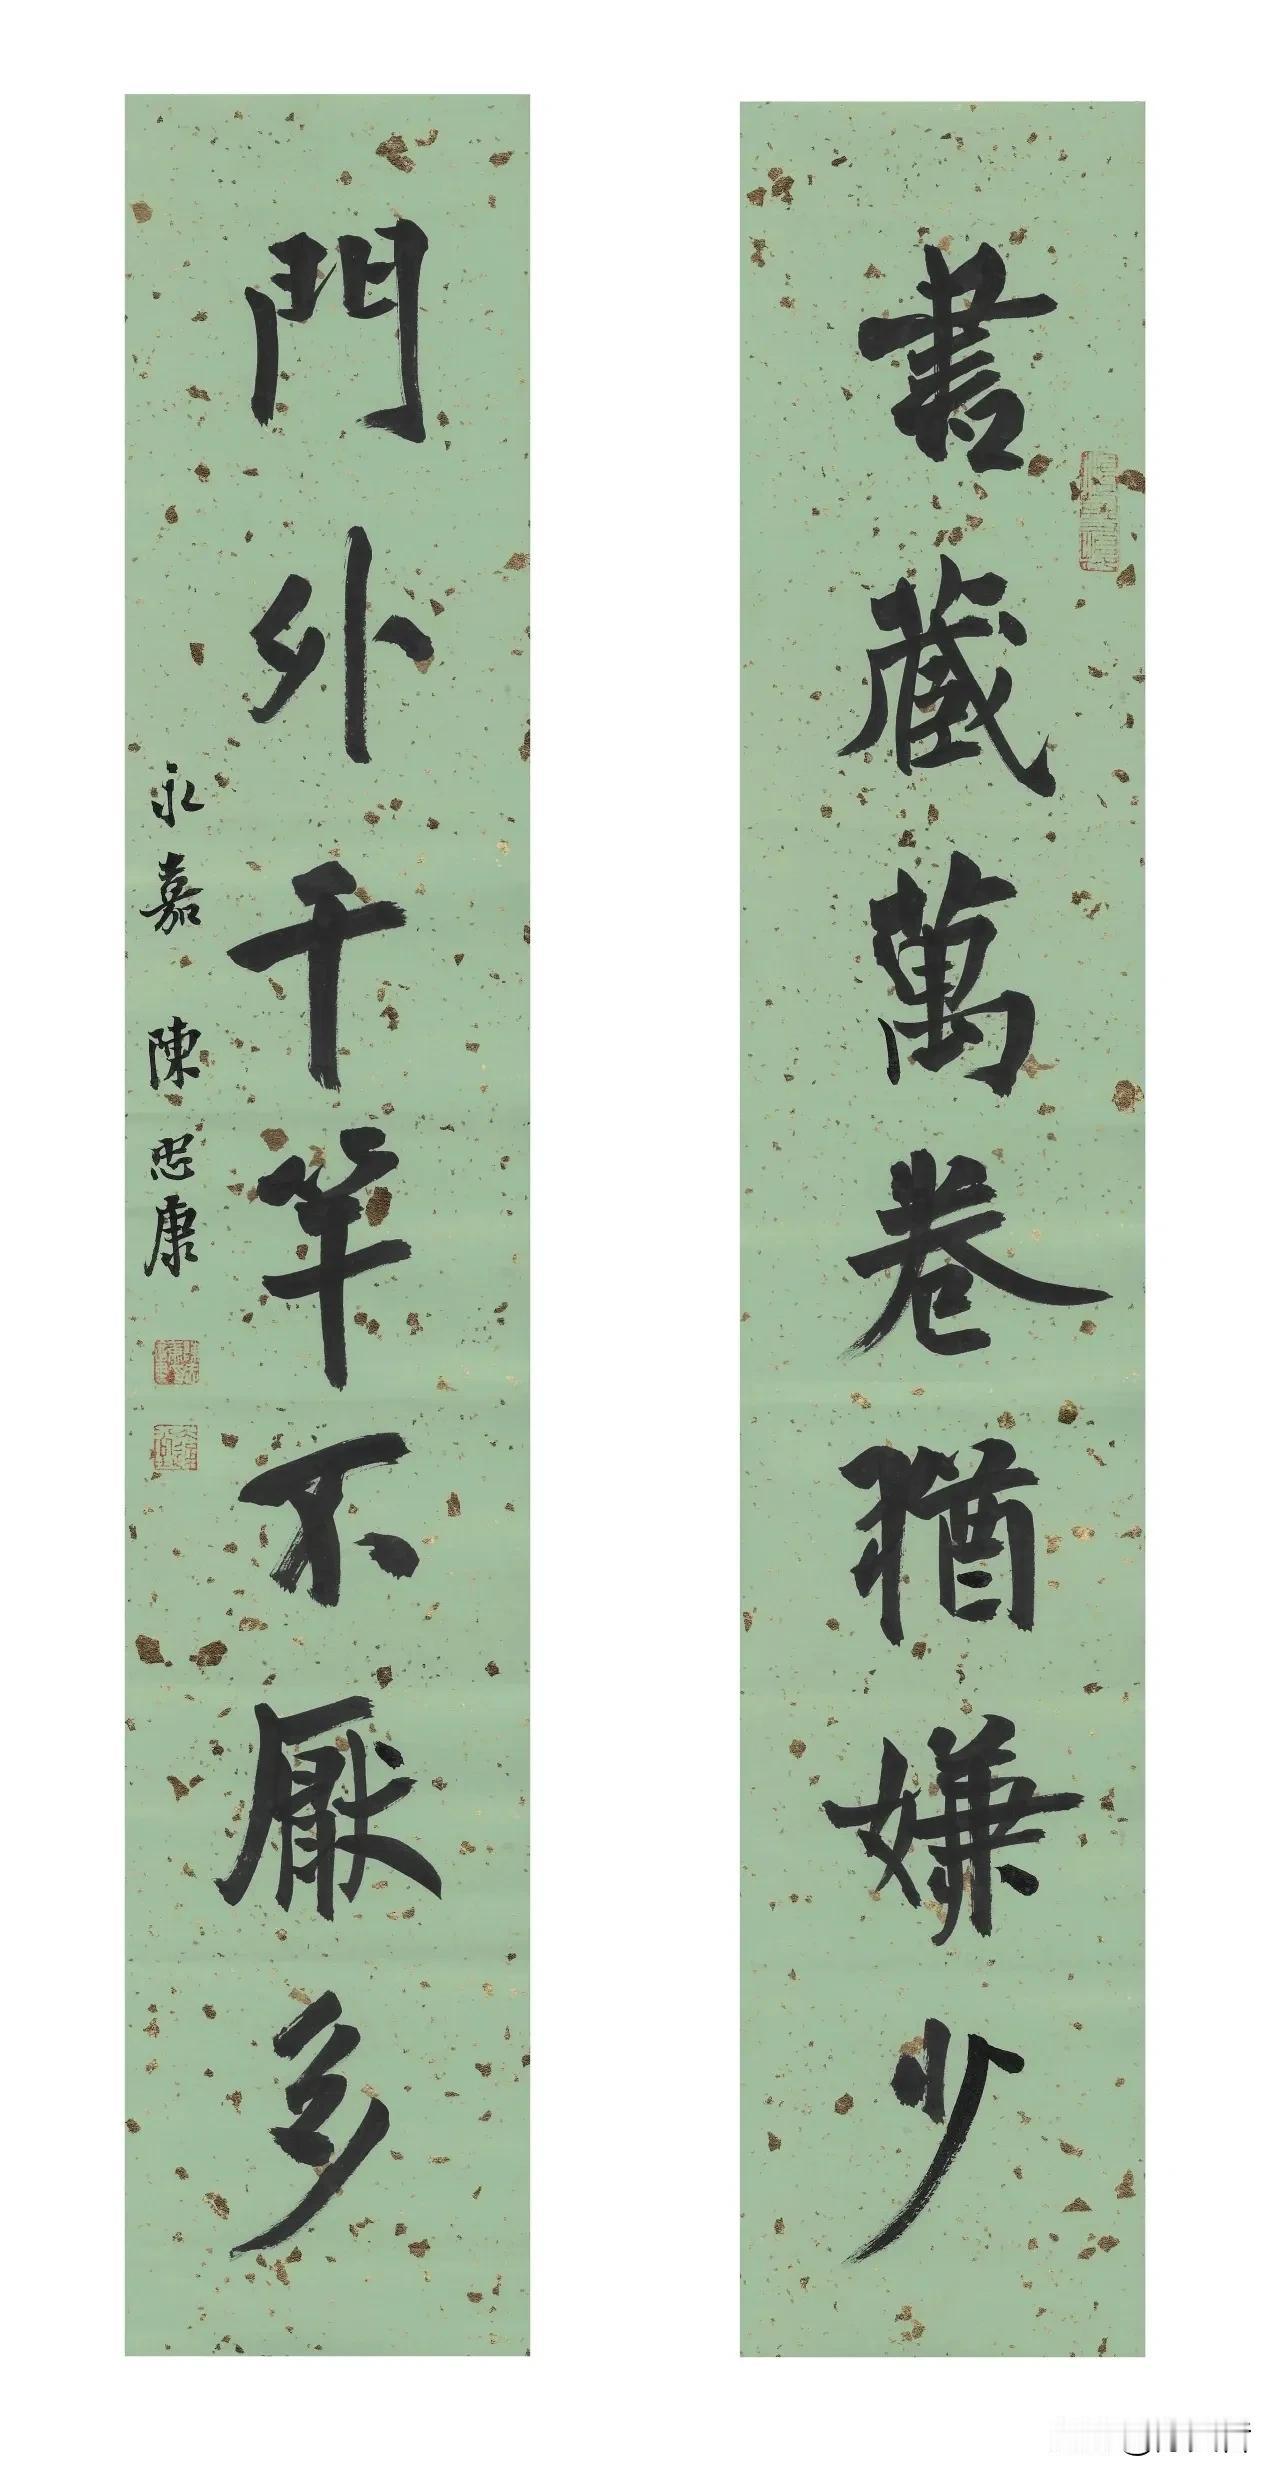 書藏萬卷猶嫌少
門外千竿不厭多
永嘉 陳忠康